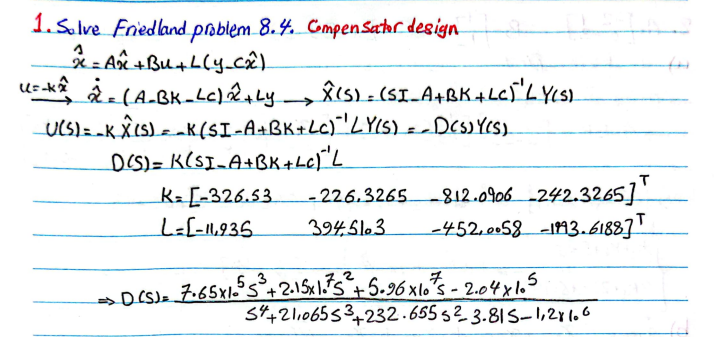 1. Solve Friedland problem 8.4. Compensator design
x̂̇ = Ax̂ + Bu + L(y-cx̂)
u=-kx̂ → x̂̇ = (A-BK-Lc)x̂ + Ly → X̂(s) = (SI-A+BK+Lc)⁻¹LY(s)
U(s) = -K X̂(s) = -K(SI-A+BK+Lc)⁻¹LY(s) = -D(s)Y(s)
D(s) = K(SI-A+BK+Lc)⁻¹L
K = [-326.53 -226.3265 -812.0906 -242.3265]ᵀ
L = [-11,935 3945103 -452,0058 -1993.6188]ᵀ
⇒ D(s) = 7.65x10⁵s³+2.15x10⁷s²+5.96x10⁷s - 2.04x10⁵
s⁴+21,065s³+232.655s²-3.81s-1,2x10⁶